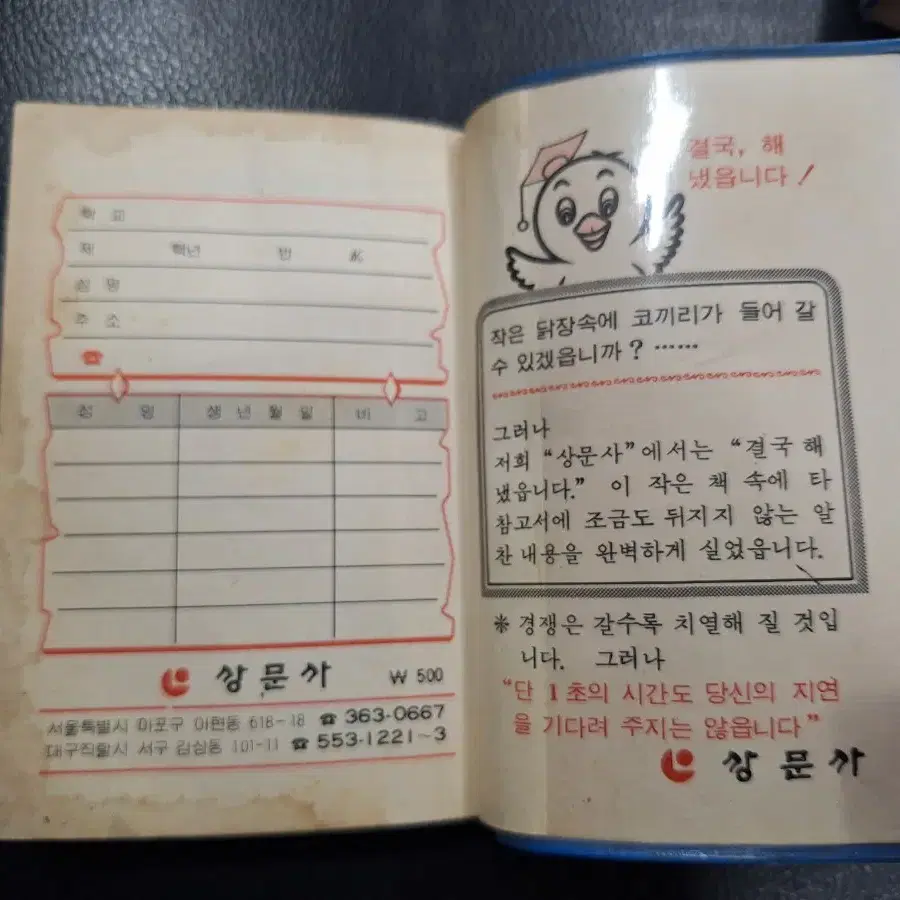 학 교
제 학년 반 번
성 명
주 소
☎
성 명 생 년 월 일 비 고
상문사 ₩ 500
서울특별시 마포구 아현동 618-18 ☎ 363-0667
대구직할시 서구 ☎ 553-1221~3
결국, 해
냈읍니다!
작은 닭장속에 코끼리가 들어 갈
수 있겠읍니까? ……
그러나
저희 “상문사”에서는 “결국 해
냈읍니다.” 이 작은 책 속에 타
참고서에 조금도 뒤지지 않는 알
찬 내용을 완벽하게 실었읍니다.
※ 경쟁은 갈수록 치열해 질 것입
니다. 그러나
“단 1초의 시간도 당신의 지연
을 기다려 주지는 않읍니다”
상문사